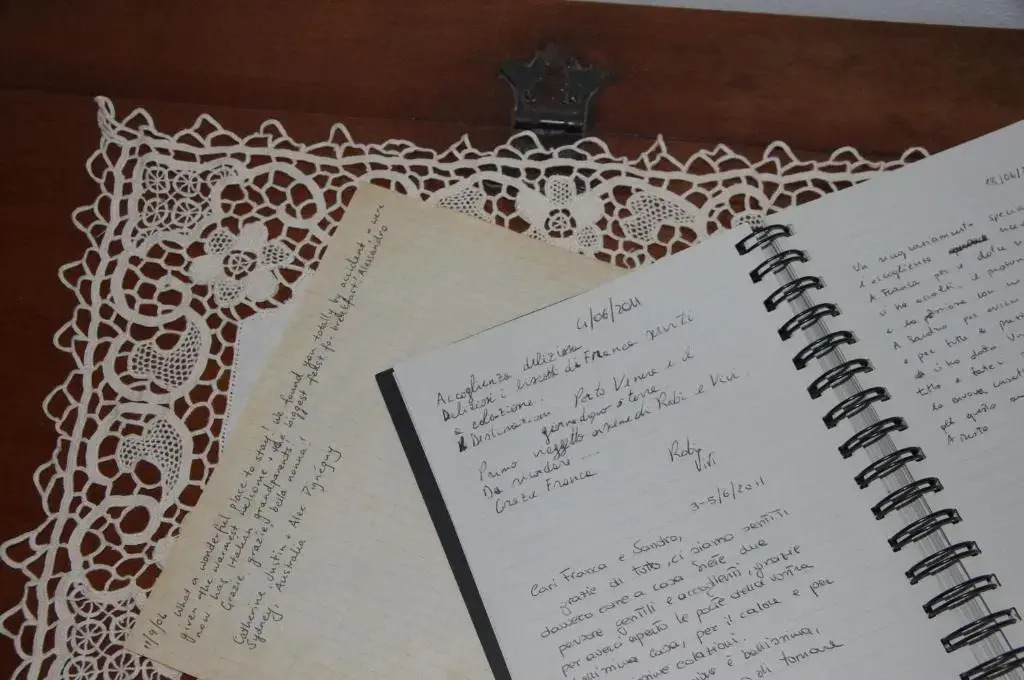 11/9/06 What a wonderful place to stay! We found you totally by accident + were
given the warmest welcome + the biggest feast for breakfast! Alessandro
now has Italian grandparents!
Grazie, grazie, bella nonna!
Catherine, Justin + Alec Pigneguy
Sydney, Australia
4/06/2011
Accoglienza deliziosa
Deliziosi i biscotti di Franca serviti
a colazione.
Destinazioni Porto Venere e il
giorno dopo 5 terre.
Primo viaggetto insieme di Robi e Vivi.
Da ricordare ....
Grazie Franca
Robi
Vivi
3-5/6/2011
Cari Franca e Sandro,
grazie di tutto, ci siamo sentiti
davvero come a casa. Siete due
persone gentili e accoglienti, grazie
per averci aperto le porte della vostra
bellissima casa, per il calore e per
colazioni.
è bellissima,
di tornare
18/06/
Un ringraziamento
e accogliente
A Franca per
ci ha accolti, e
e la
A Sandro per
e per tutte le
ci ha dato.
tutto e
per questo
A presto